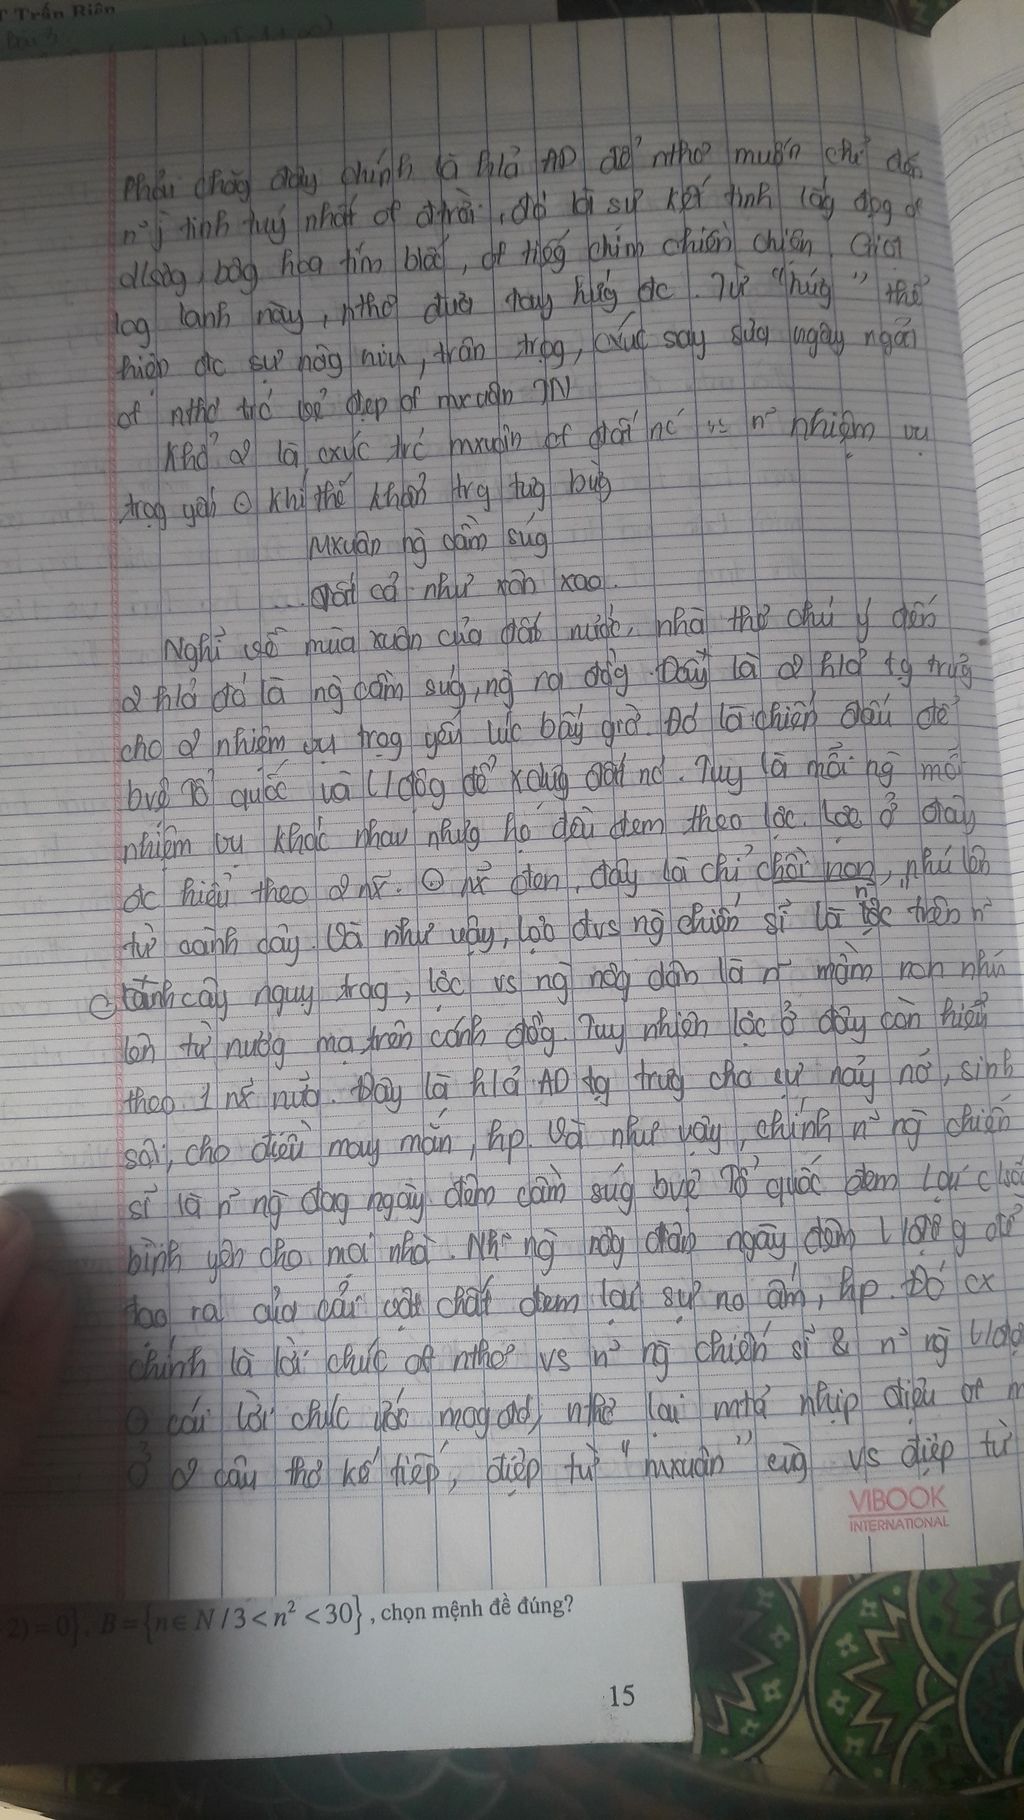 T Trấn Biên
Bài 3
phải chăng đây chính là h/ả AD để nthơ muốn chỉ đến
n~ j tinh tuý nhất of đtrời, đó là sự kết tinh lắng đọng of
dsôg, bôg hoa tím biếc, of tiếg chim chiền chiện. Giọt
log lanh này, nthơ đưa tay hứg đc. Từ "hứg" thể
hiện đc sự nâg niu, trân trọg, cxúc say sưa ngây ngất
of nthơ trc vẻ đẹp of mxuân TN
Khổ 2 là cxúc trc mxuân of đất nc vs n~ nhiệm vụ
trog yếu khí thế khẩn trg tưg bừg
Mxuân ng cầm súg
... tất cả như xôn xao.
Nghĩ về mùa xuân của đất nước, nhà thơ chú ý đến
2 h/ả đó là ng cầm súg, ng ra đồg. Đây là 2 h/ả tg trưg
cho 2 nhiệm vụ trọg yếu lúc bấy giờ. Đó là chiến đấu để
bvệ Tổ quốc và lđôg để xdựg đất nc. Tuy là mỗi ng mỗi
nhiệm vụ khác nhau nhưg họ đều đem theo lộc. Lộc ở đây
đc hiểu theo 2 n~. n~ đen, đây là chỉ chồi non, nhú lên
từ cành cây. Và như vậy, lộc đvs ng chiến sĩ là lộc trên n~
cành cây nguỵ trag, lộc vs ng nôg dân là n~ mầm non nhú
lên từ nươg mạ trên cánh đồg. Tuy nhiên lộc ở đây còn hiểu
theo 1 n~ nữa. Đây là h/ả AD tg trưg cho sự nảy nở, sinh
sôi, cho điều may mắn, hp. Và như vậy, chính n~ ng chiến
sĩ là n~ ng đag ngày đêm cầm súg bvệ Tổ quốc đem lại csốg
bình yên cho mọi nhà. Nh~ ng nôg dân ngày đêm lđôg để
tạo ra của cải vật chất đem lại sự no ấm, hp. Đó cx
chính là lời chúc of nthơ vs n~ ng chiến sĩ & n~ ng lđôg
cái lời chúc nthơ lại mtả nhịp điệu of m
Ở 2 câu thơ kế tiếp, điệp từ "mxuân" cùg vs điệp từ
VIBOOK
INTERNATIONAL
2) = 0}, B = {n ∈ N / 3 < n² < 30}, chọn mệnh đề đúng?
15